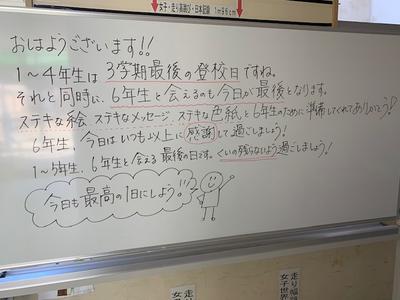 女子・走り高跳び・日本記録 1m96cm
おはようございます!!
1〜4年生は3学期最後の登校日ですね。
それと同時に、6年生と会えるのも今日が最後となります。
ステキな絵、ステキなメッセージ、ステキな色紙と6年生のために準備してくれてありがとう!
6年生、今日はいつも以上に感謝して過ごしましょう!
1〜5年生、6年生と会える最後の日です。くいの残らないよう過ごしましょう!
今日も最高の1日にしよう!!
走り幅跳
女子世界
走り
女子